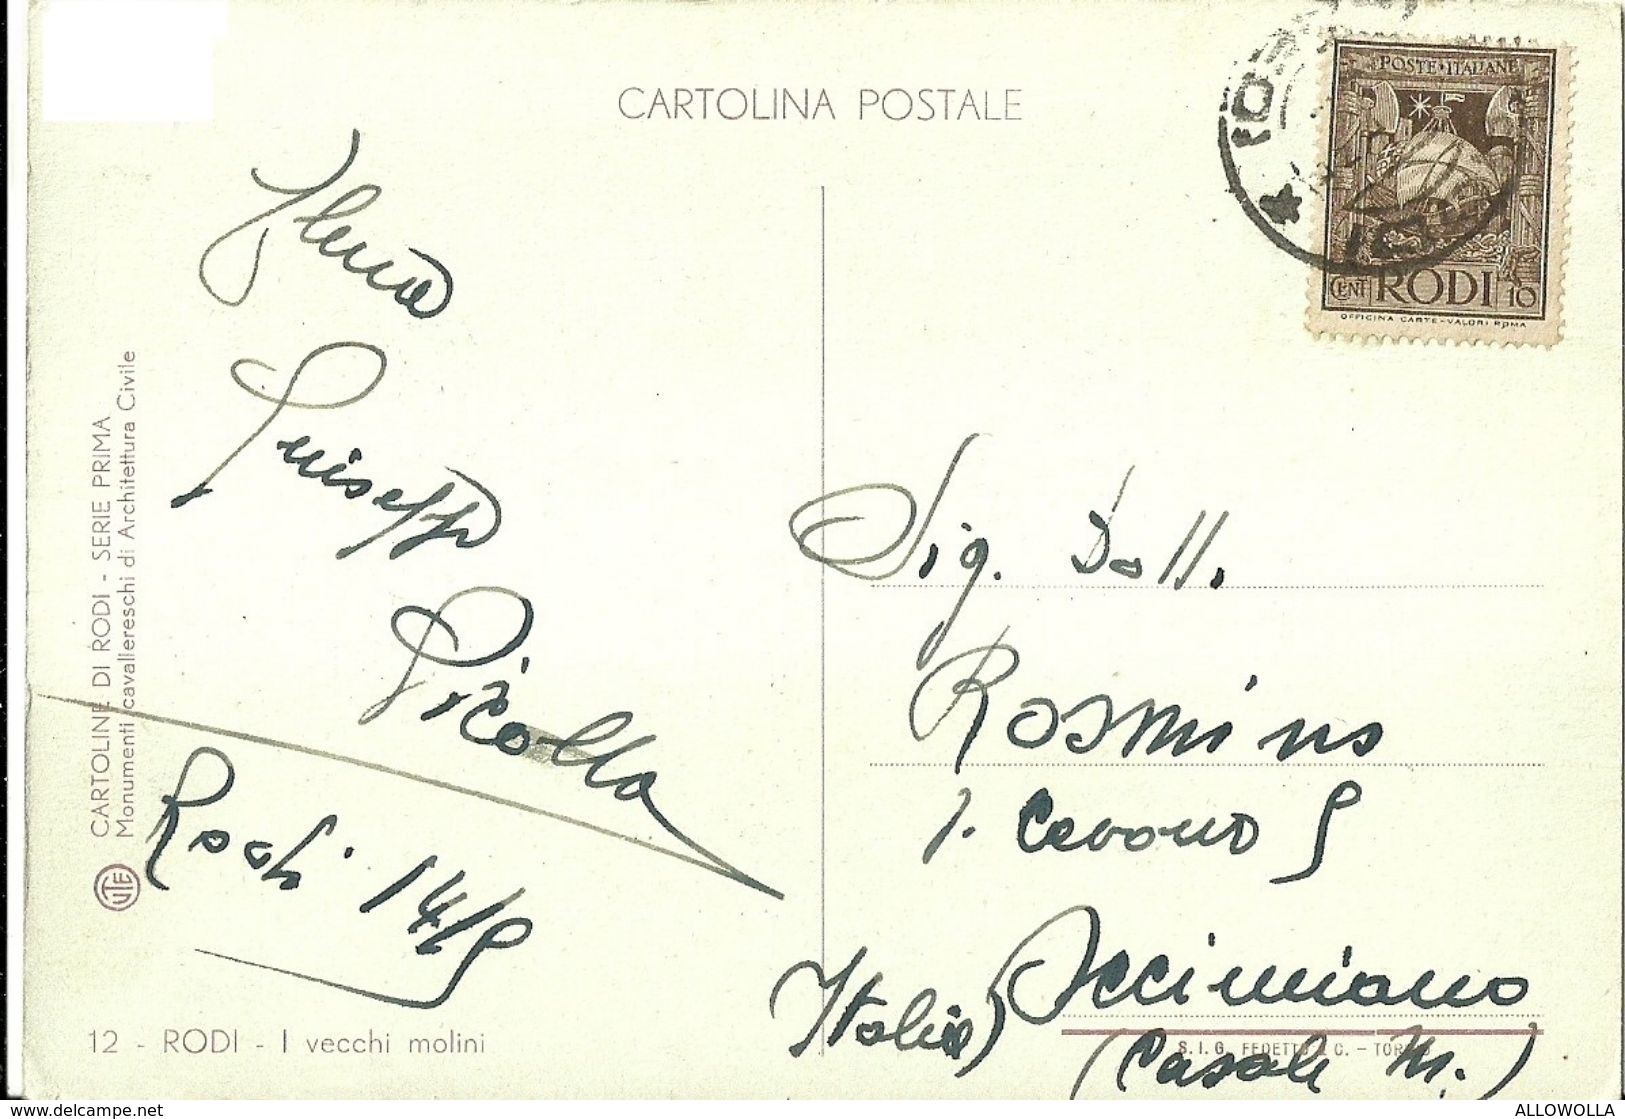 CARTOLINA POSTALE
POSTE ITALIANE
CENT RODI 10
OFFICINA CARTE-VALORI ROMA
Giuseppe
Rodi 14/9
Sig. Dott.
Rosmino
Occimiano
(Casale M.)
Italia
CARTOLINE DI RODI - SERIE PRIMA
Monumenti cavallereschi di Architettura Civile
UTE
12 - RODI - I vecchi molini
S.I.G. FEDETTO & C. - TORINO
www.delcampe.net
ALLOWOLLA